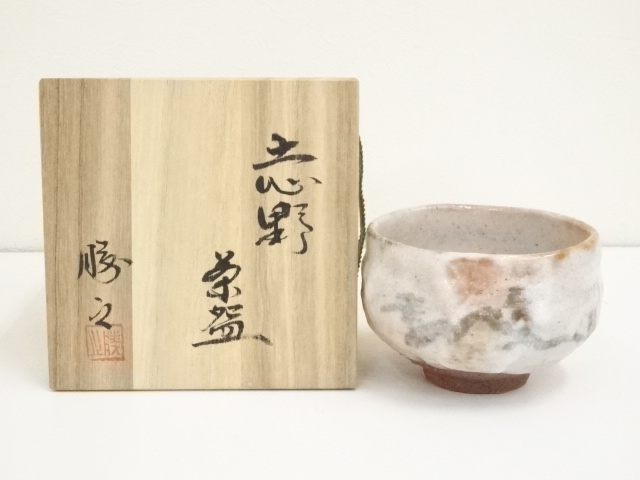 志野
茶盌
勝之